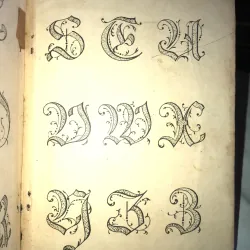 S T U
V W X
Y Z Z